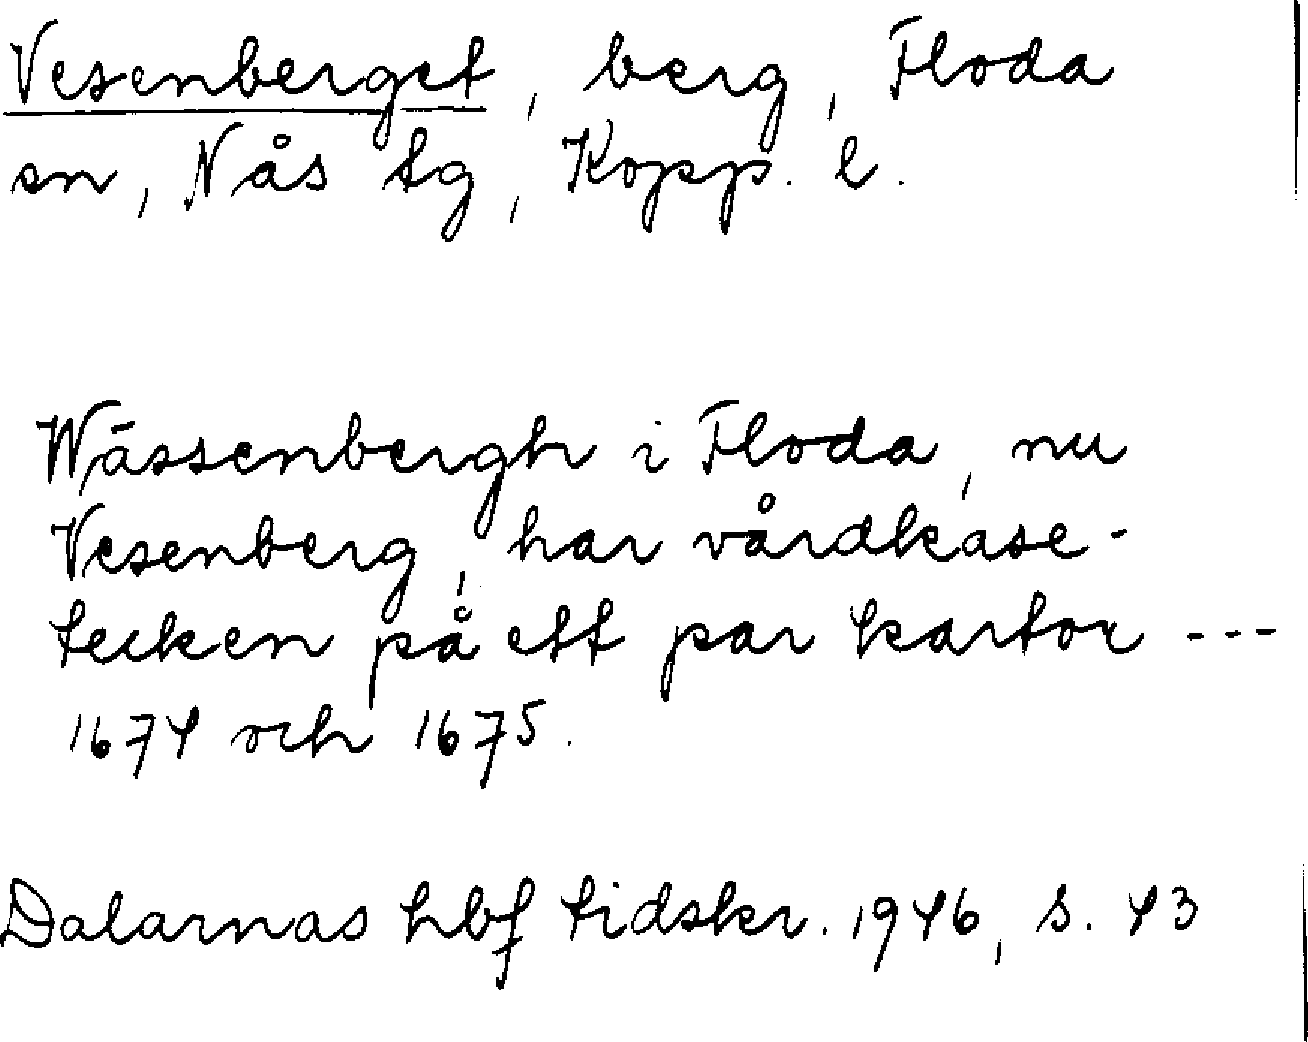 Vesenberget, berg, Floda
sn, Nås tg, Kopp. l.
Wässenbergh i Floda, nu
Vesenberg, har vårdkase-
tecken på ett par kartor ---
1674 och 1675.
Dalarnas hbf tidskr. 1946, s. 43